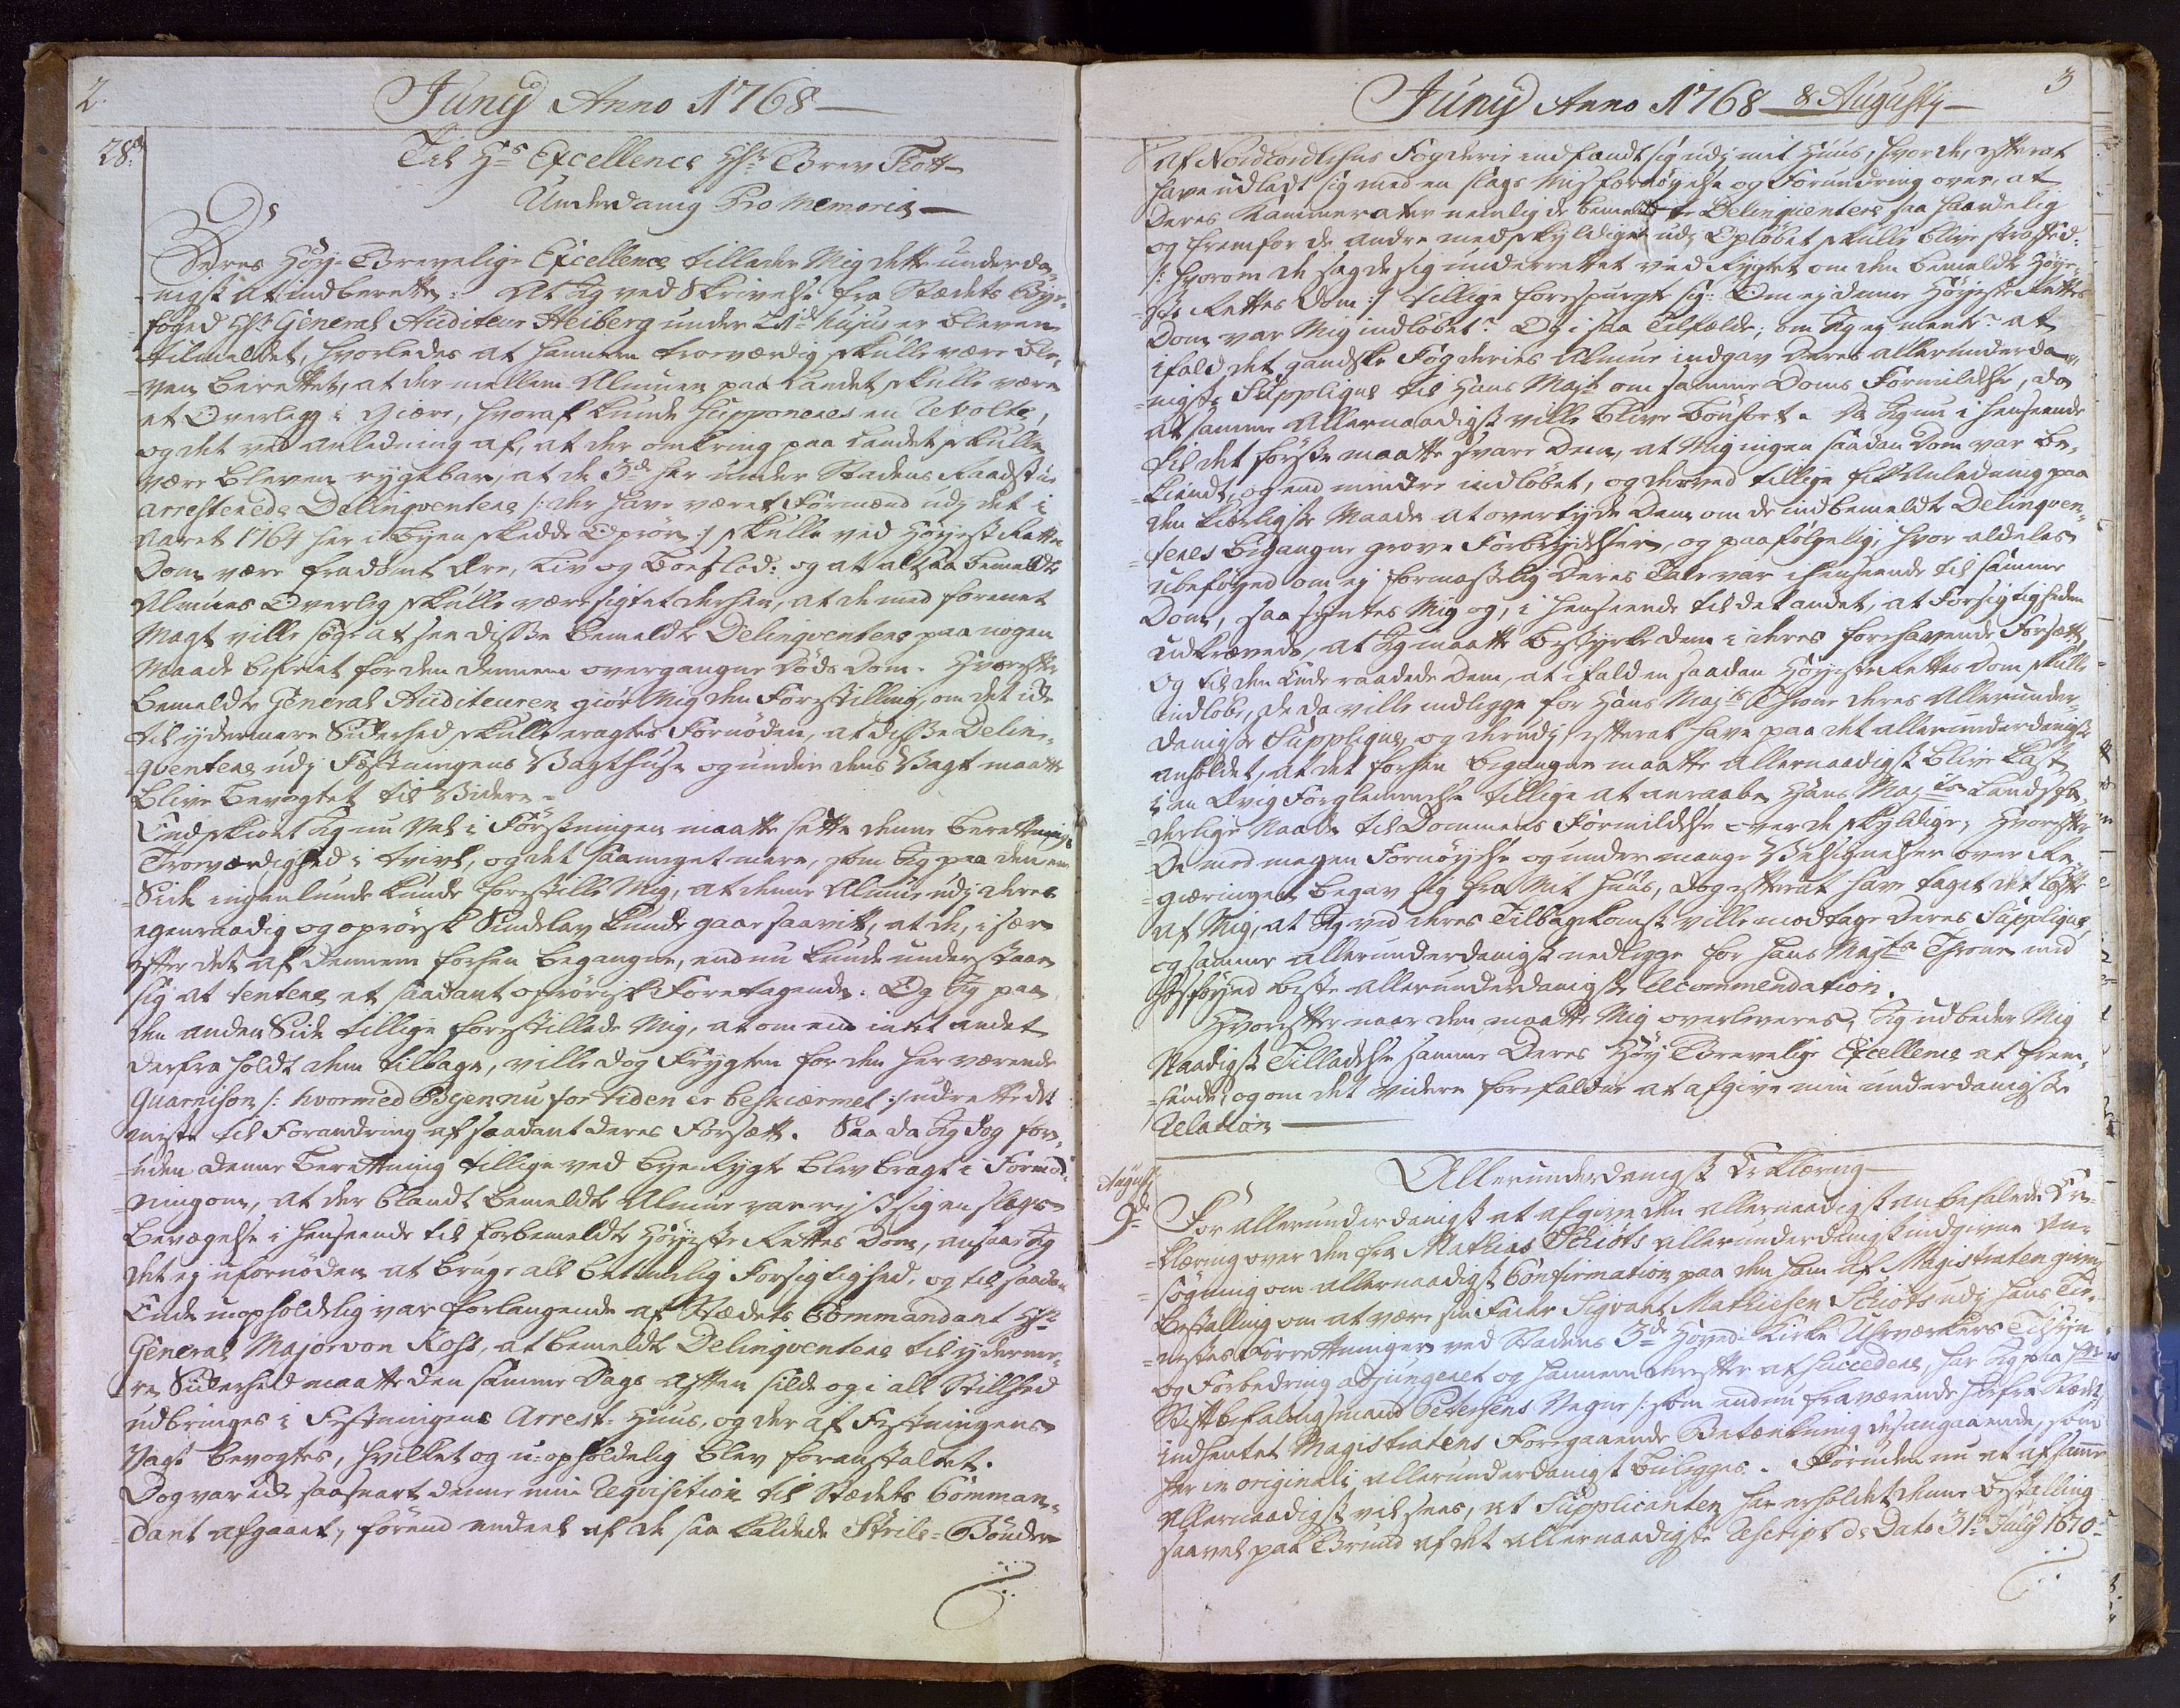 2.
Junij Anno 1768
28de
Til Hs Excellence Hr Grev Tott
Underdanig Pro Memoria
Deres Høy-Grevelige Excellence tillader Mig dette underda-
nigst at indberette: At Jeg ved Skrivelse fra Stædets Bye-
foged Hr General Auditeur Heiberg under 21de hujus er bleven
tilmeldet, hvorledes at hannem troeværdig skulle være ble-
ven berettet, at der mellem Almuen paa Landet skulle være
et Overlæg i Giære, hvoraf kunde supponeres en Revolte,
og det ved Anledning af, at der omkring paa Landet skulle
være bleven rygtbar, at de 3de her under Stadens Raadstue
arresterede Delinqventere /: der have været Formænd udj det i
Aaret 1764 her i Byen skedde Oprør :/ skulle ved Høyeste Rettes
Dom være fradømt Ære, Liv og Boeslod: og at altsaa bemeldte
Almues Overlæg skulle være sigtet derhen, at de med forenet
Magt ville søge at see disse bemeldte Delinqventere paa nogen
Maade befriet for den dennem overgangne Døds Dom. Hvorefter
bemeldte General Auditeuren giør Mig den Forestilling, om det icke
til ydermere Sickerhed skulle eragtes Fornøden, at disse Delin-
qventere udj Fæstningens Vagthuse og under dens Vagt maatte
blive bevogtet til Videre.
Endskiønt Jeg nu Vel i Førstningen maatte sette denne Beretnings
Troeværdighed i tvivl, og det saameget mere, som Jeg paa den ene
Side ingenlunde kunde forestille Mig, at denne Almue udj deres
egenraadig og oprørsk Sindelav kunde gaae saavitt, at de, især
efter det af Dennem forhen begangne, endnu kunde understaae
sig at tentere et saadant oprørisk Foretagende. Og Jeg paa
den anden Side tillige forestillede Mig, at om end intet andet
derfra holdt dem tilbage, ville dog Frygten for den her værende
Guarnison /: hvormed Byen nu for tiden er beskiærmet :/ udrette det
meste til Forandring af saadant deres Forsætt. Saa da Jeg dog for-
uden denne Beretning tillige ved bye-Rygte blev bragt i Formod-
ning om, at der blandt bemeldte Almue var reyst sig en slags
bevægelse i henseende til forbemeldte Høyeste Rettes Dom, ansaae Jeg
det ej ufornøden at bruge all betimelig Forsigtighed, og til saadan
Ende uopholdelig var forlangende af Stædets Commandant Hr
General Major von Koss, at bemeldte Delinqventere til yderme-
re Sickerhed maatte den samme Dags Aften silde og i all Stillhed
udbringes i Festningens Arrest-Huus, og der af Festningens
Vagt bevogtes, hvilket og u-opholdelig blev foranstaltet.
Dog var icke saasnart denne min Reqvisition til Stædets Comman-
dant afgaaet, førend endeel af de saa kaldede Strile-Bønder
Junij Anno 1768 & Augustij
3
af Nordhordlehns Fogderie indfandt sig udj mit Huus, hvor de, efter at
have udladt sig med en slags Misfornøyelse og Forundring over, at
Deres Kammerater nemlig de bemeldte Delinqventere saa haardelig
og fremfor de andre medskyldige udj Opløbet skulle blive straffed:
/: hvorom de sagde sig underrettet ved Rygtet om den bemeldte Høye-
ste Rettes Dom :/ tillige forespurgte sig: Om ej denne Høyeste Rettes
Dom var Mig indløbet? Og i saa Tilfælde; om Jeg ej meente? at
ifald det gandske Fogderies Almue indgav Deres allerunderda-
nigste Supplique til Hans Mayst om samme Doms Formildelse, da
at samme Allernaadigst ville blive Bønhørt. Da Jeg nu i henseende
til det første maatte svare Dem, at Mig ingen saadan Dom var be-
kiendt, og end mindre indløbet, og derved tillige fik Anledning paa
den kiærligste Maade at overtyde Dem om de indbemeldte Delinqven-
teres begangne grove Forbrydelser, og paafølgelig; hvor aldeles
ubeføyed om ej formastelig Deres Tale var i henseende til samme
Dom, saa syntes Mig og, i henseende til det andet, at Forsigtigheden
udkrævede, at Jeg maatte bestyrke dem i deres forehavende Forsætt,
og til den Ende raadede Dem, at ifald en saadan Høyeste Rettes Dom skulle
indløbe, de da ville nedlegge for Hans Mayts Throne deres Allerunder-
danigste Supplique, og derudj, efter at have paa det allerunderdanigste
anholdet, at det forhen begangne maatte Allernaadigst blive kast
i en Ævig Forglemmelse tillige at anraabe Hans Mayts Landsfa-
derlige Naade til Dommens Formildelse over de skyldige; hvorefter
De med megen Fornøyelse og under mange Velsignelser over Re-
gieringen begav sig fra Mit Huus, dog efter at have taget det løfte
af Mig, at Jeg ved deres Tilbagekomst ville modtage Deres Supplique,
og samme allerunderdanigst nedlegge for Hans Mayts Throne med
hosføyed beste allerunderdanigste Recommendation.
Hvorefter naar den maatte Mig overleveres, Jeg udbeder Mig
Naadigst Tilladelse samme Deres Høy Grevelige Excellence at frem-
sende, og om det videre forefaldne at afgive min underdanigste
Relation
Allerunderdanigst Erklæring
Augustj
9de
For allerunderdanigst at afgive den allernaadigst anbefalede Er-
klæring over den fra Mathias Schiøts allerunderdanigst indgivne An-
søgning om allernaadigst Confirmation paa den ham af Magistraten given
Bestalling om at være sin Fader Sigvart Mathiesen Schiøts udj hans Tie-
nestes Forrettninger ved Stadens 3de Hoved-Kirke Uhrværkers Tilsyn
og Forbedring adjungeret og hannem derefter at succedere, har Jeg paa Hr
Stiftbefalingsmand Pedersens Vegne /: som endnu fraværende herfra Stædet,
indhentet Magistratens Foregaaende Betænkning desangaaende, som
her in originali allerunderdanigst bielegges. Foruden nu at af samme
Allernaadigst vil sees, at Supplicanten har erholdet denne Bestalling
saavel paa Grund af det allernaadigste Rescript de Dato 31te July 1670